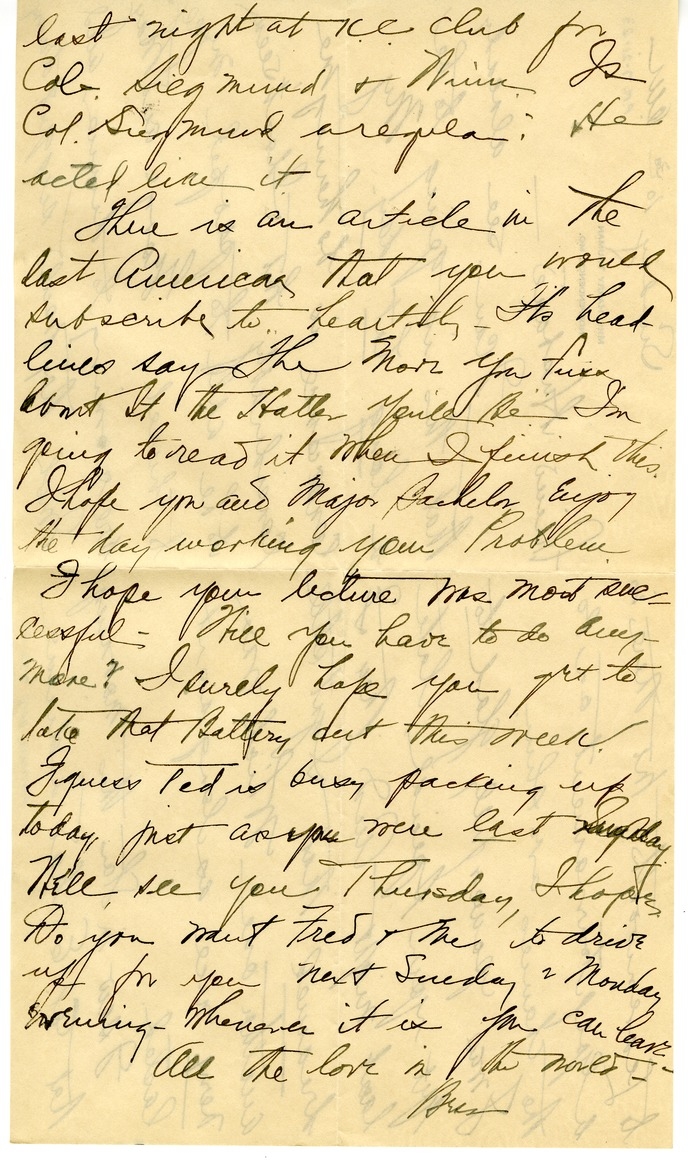 last night at K.C. Club for
Col. Siegmund & Winn. Is
Col. Siegmund a regular? He
acted like it
There is an article in the
last American that you would
subscribe to heartily - Its head-
lines say The More You Fuss
bout It the Hotter You'll Be I'm
going to read it when I finish this.
I hope you and Major Bachelor enjoy
the day working your Problem
I hope your lecture was most suc-
cessful - Will you have to do any-
more? I surely hope you get to
take that Battery out this week.
I guess Ted is busy packing up
today, just as you were last Sunday
Will see you Thursday, I hope,
Do you want Fred & me to drive
up for you next Sunday or Monday
evening - Whenever it is you can leave -
All the love in the world -